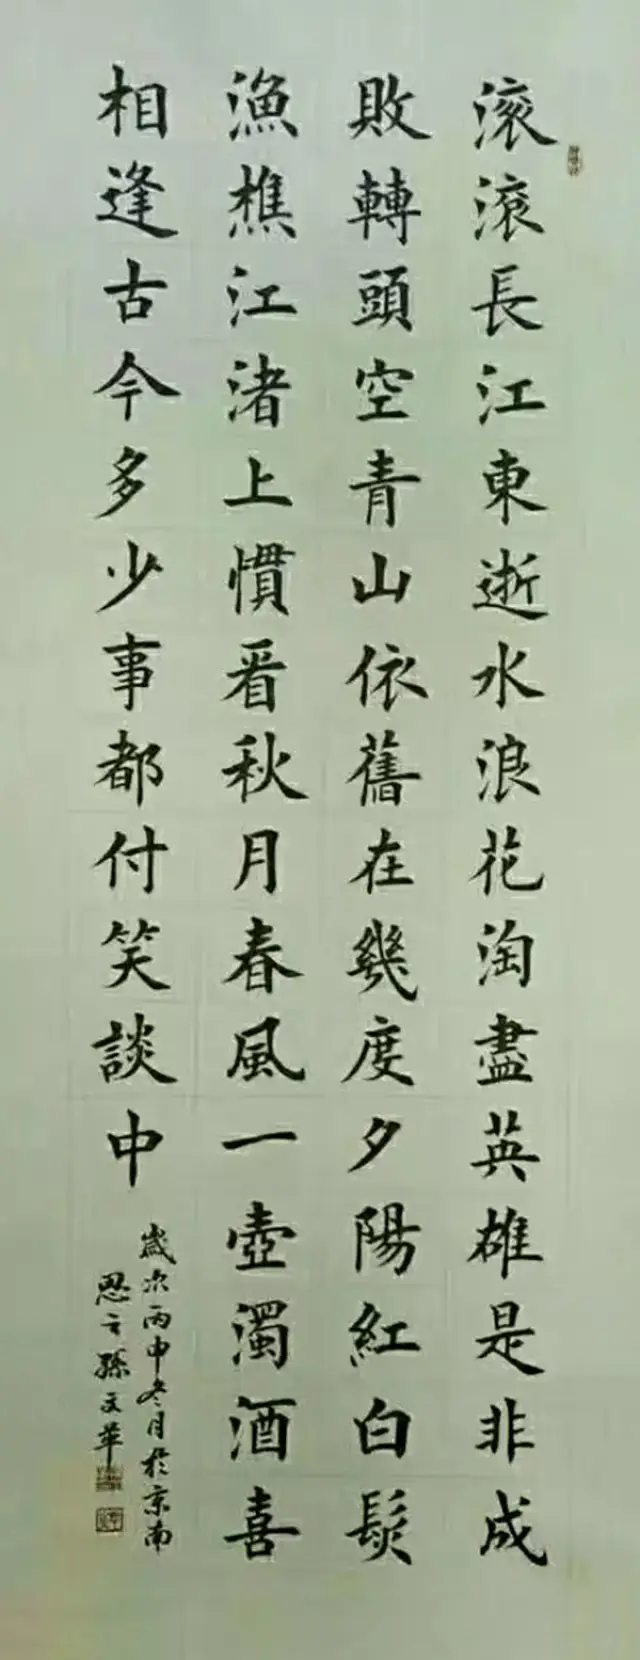 滚滚長江東逝水浪花淘盡英雄是非成
敗轉頭空青山依舊在幾度夕陽紅白髮
漁樵江渚上慣看秋月春風一壺濁酒喜
相逢古今多少事都付笑談中
歲次丙申冬月於京南
言孫文華